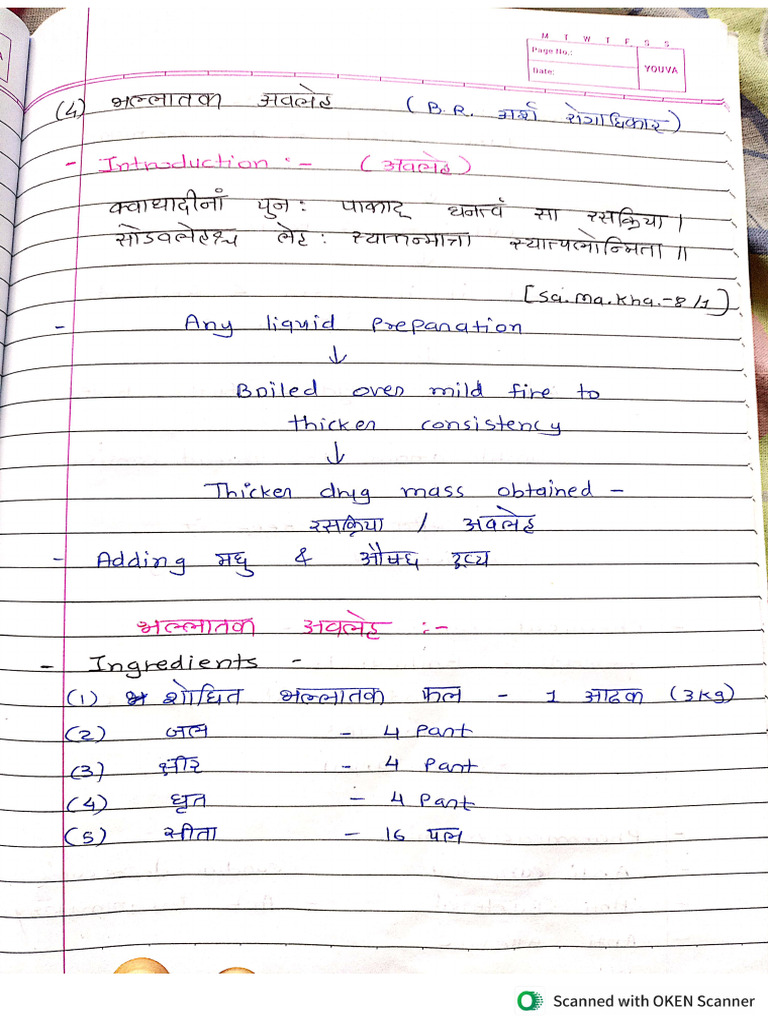 M T W T F S S
Page No.:
Date:
YOUVA
(4) भल्लातक अवलेह (B.R. अर्श रोगाधिकार)
- Introduction :- (अवलेह)
क्वाथादीनां पुन: पाकाद् घनत्वं सा रसक्रिया ।
सोडवलेहश्च लेह: स्यात्तन्मात्रा स्यात्पलोन्मिता ॥
[Sa.ma.kha.-8/1]
- Any liquid preparation
↓
Boiled over mild fire to
thicker consistency
↓
Thicker drug mass obtained -
रसक्रिया / अवलेह
- Adding मधु & औषध द्रव्य
भल्लातक अवलेह :-
- Ingredients -
(1) शोधित भल्लातक फल - 1 आढक (3kg)
(2) जल - 4 Part
(3) क्षीर - 4 Part
(4) घृत - 4 Part
(5) सीता - 16 पल
Scanned with OKEN Scanner